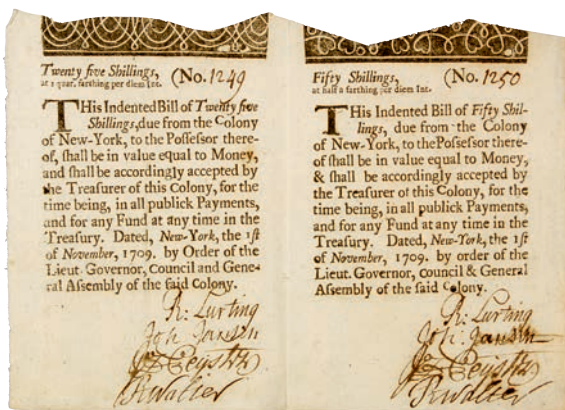 Twenty five Shillings, (No. 1249
at 1 quar. farthing per diem Int.
THis Indented Bill of Twenty five
Shillings, due from the Colony
of New-York, to the Poſſeſsor there-
of, ſhall be in value equal to Money,
and ſhall be accordingly accepted by
the Treaſurer of this Colony, for the
time being, in all publick Payments,
and for any Fund at any time in the
Treaſury. Dated, New-York, the 1ſt
of November, 1709. by Order of the
Lieut. Governor, Council and Gene-
ral Aſſembly of the ſaid Colony.
R: Lurting
Joh Jansen
JD Peyster
RWalter
Fifty Shillings, (No. 1250
at half a farthing per diem Int.
THis Indented Bill of Fifty Shil-
lings, due from the Colony
of New-York, to the Poſſeſsor there-
of ſhall be in value equal to Money,
& ſhall be accordingly accepted by
the Treaſurer of this Colony, for the
time being, in all publick Payments,
and for any Fund at any time in the
Treaſury. Dated, New-York, the 1ſt
of November, 1709. by order of the
Lieut. Governor, council & General
Aſſembly of the ſaid Colony.
R: Lurting
Joh. Jansen
JD Peyster
RWalter